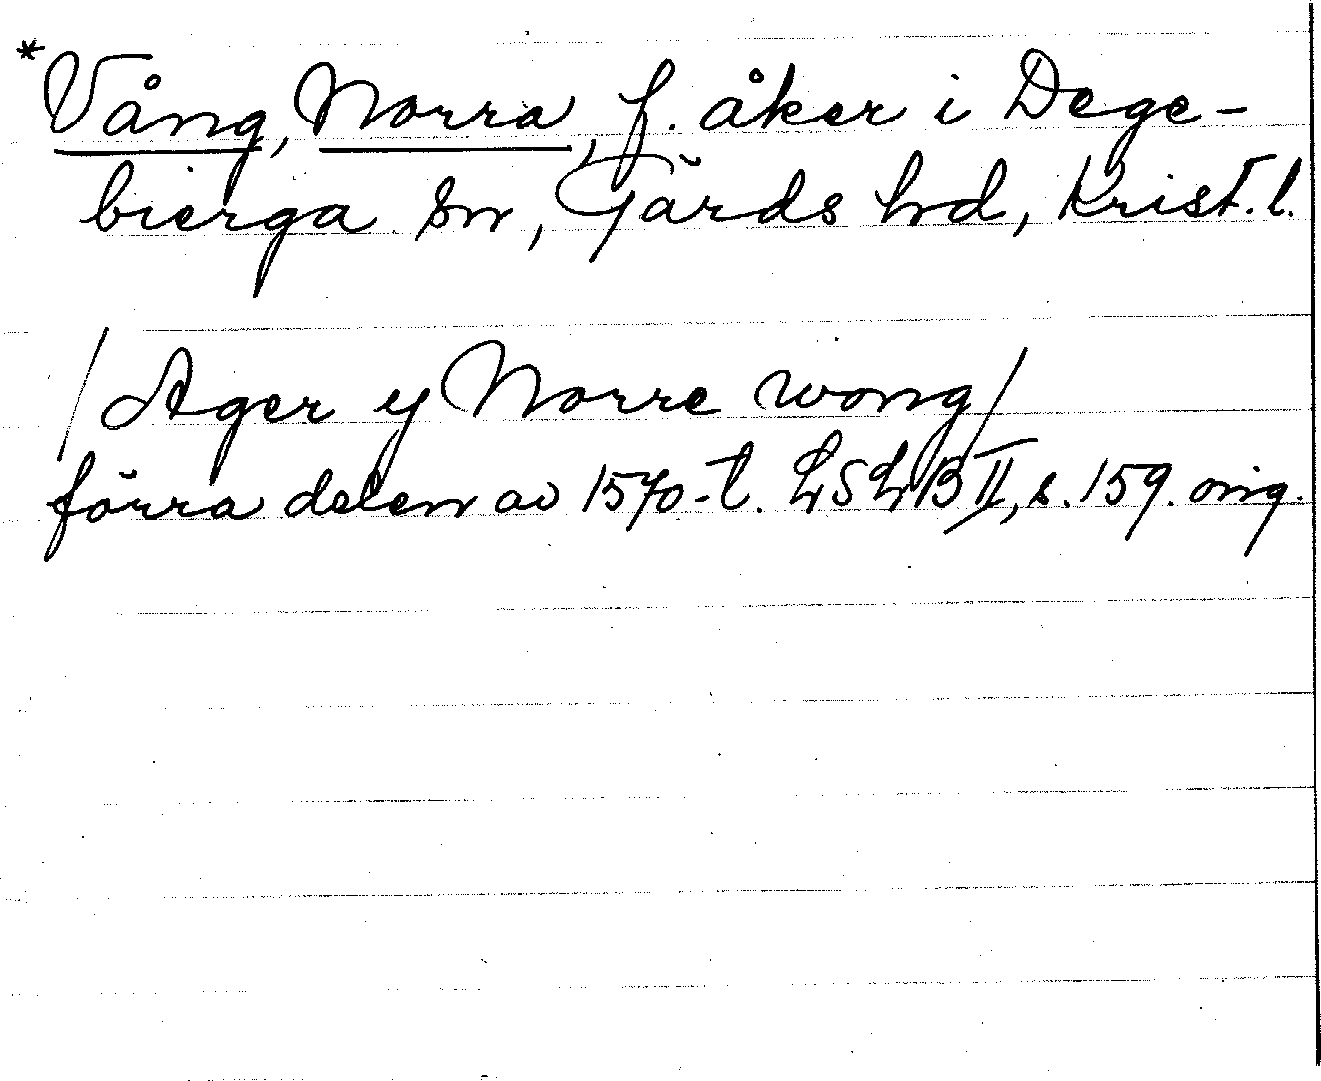 *Vång, Norra, f. åker i Dege-
bierga sn, Gärds hd, Krist. l.
/Ager y Norre wong/
förra delen av 1570-t. LSLB II, s. 159. orig.